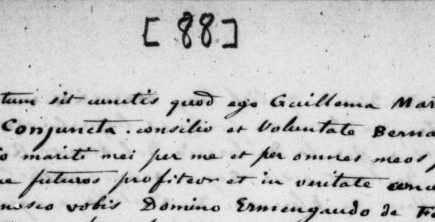 [88]
tum sit cunctis quod ego Guillema Mar
Conjuncta. consilio et Voluntate Berna
o mariti mei per me et per omnes meos,
e futuros profiteor et in veritate
nosco vobis Domino Ermengaudo de